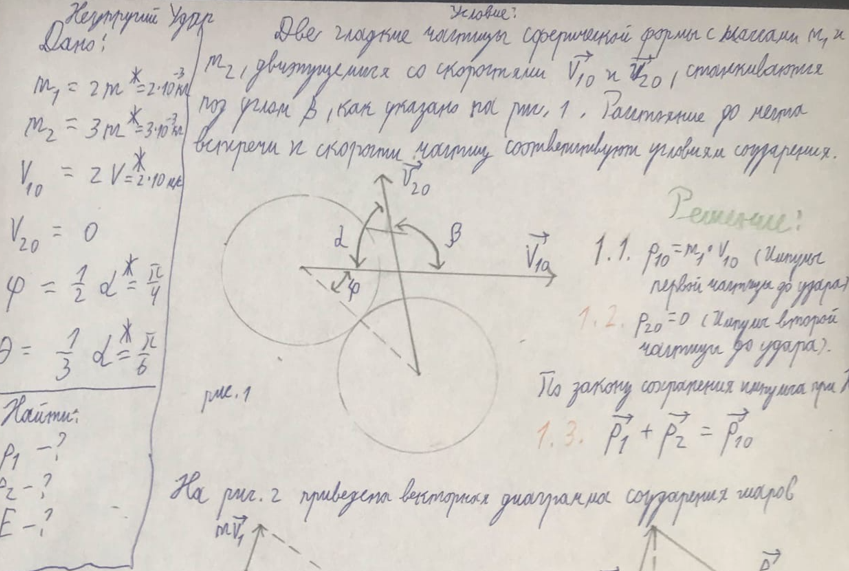 Неупругий Удар
Дано:
m₁ = 2m* = 2·10⁻³ кг
m₂ = 3m* = 3·10⁻³ кг
V₁₀ = 2V* = 2·10 м/с
V₂₀ = 0
φ = 1/2 α* = π/4
Θ = 1/3 α* = π/6
Найти:
p₁ - ?
p₂ - ?
E - ?
Условие:
Две гладкие частицы сферической формы с массами m₁ и
m₂, движущиеся со скоростями V₁₀ и V₂₀, сталкиваются
под углом β, как указано на рис. 1. Расстояние до места
встречи и скорости частиц соответствуют условиям соударения.
V₂₀
α
β
V₁₀
φ
рис. 1
Решение:
1.1. p₁₀ = m₁·V₁₀ (Импульс
первой частицы до удара)
1.2. p₂₀ = 0 (Импульс второй
частицы до удара).
По закону сохранения импульса при
1.3. p₁ + p₂ = p₁₀
На рис. 2 приведены векторная диаграмма соударения шаров
mV₁
p